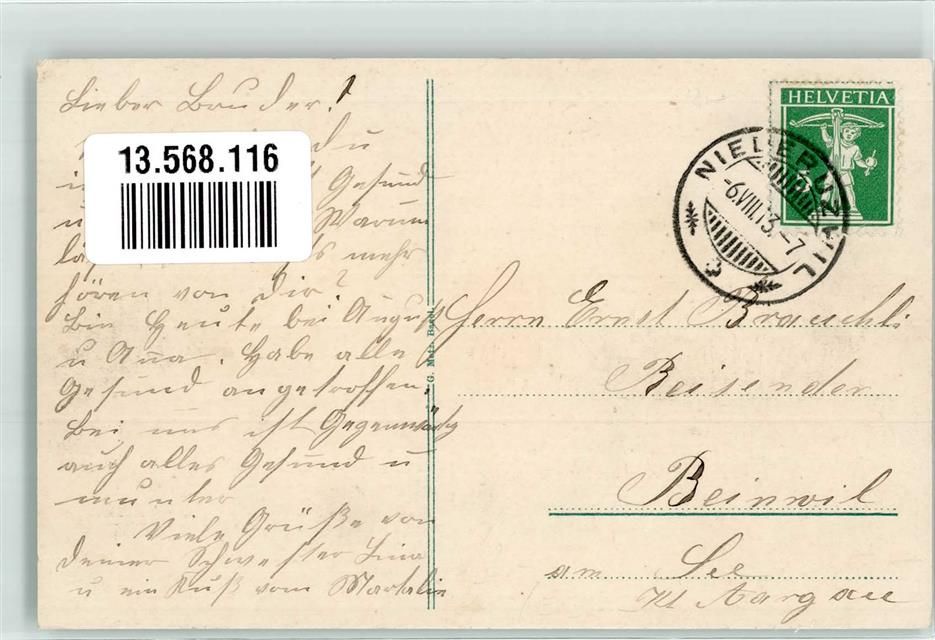 Lieber Bruder!
du
13.568.116
Gesund
u Warum
mehr
hören von Dir?
Bin Heute bei August
u Anna. Habe alle
Gesund angetroffen,
Bei uns ist Gegenwärtig
auch alles Gesund u
munter
Viele Grüße von
deiner Schwester Lina
u ein Kuß vom
G. Metz, Basel.
HELVETIA
NIEDERUZWIL
-6.VIII.13.-7
Herrn Ernst
Reisender
Beinwil
am See
Kt Aargau